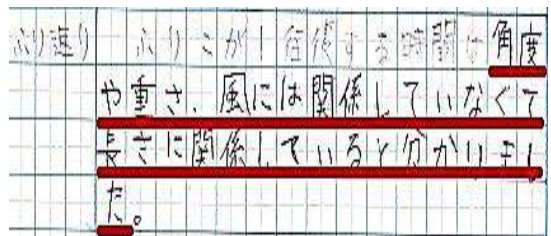 ふり返り ふりこが1往復する時間は角度
や重さ、風には関係していなくて
長さに関係していると分かりまし
た。